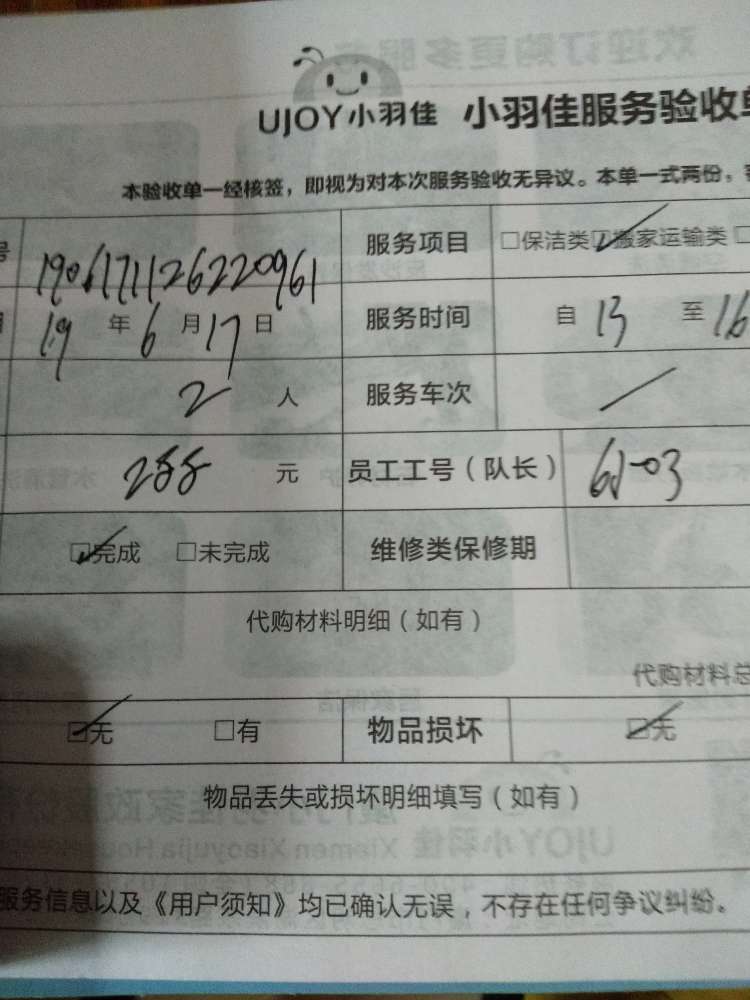 UJOY小羽佳 小羽佳服务验收单
本验收单一经核签，即视为对本次服务验收无异议。本单一式两份，
号 1906171126220961 服务项目 □保洁类 ☑搬家运输类 □
19 年 6 月 17 日 服务时间 自 13 至 16
2 人 服务车次 /
288 元 员工工号（队长）
☑完成 □未完成 维修类保修期
代购材料明细（如有）
代购材料总
☑无 □有 物品损坏 ☑无
物品丢失或损坏明细填写（如有）
服务信息以及《用户须知》均已确认无误，不存在任何争议纠纷。